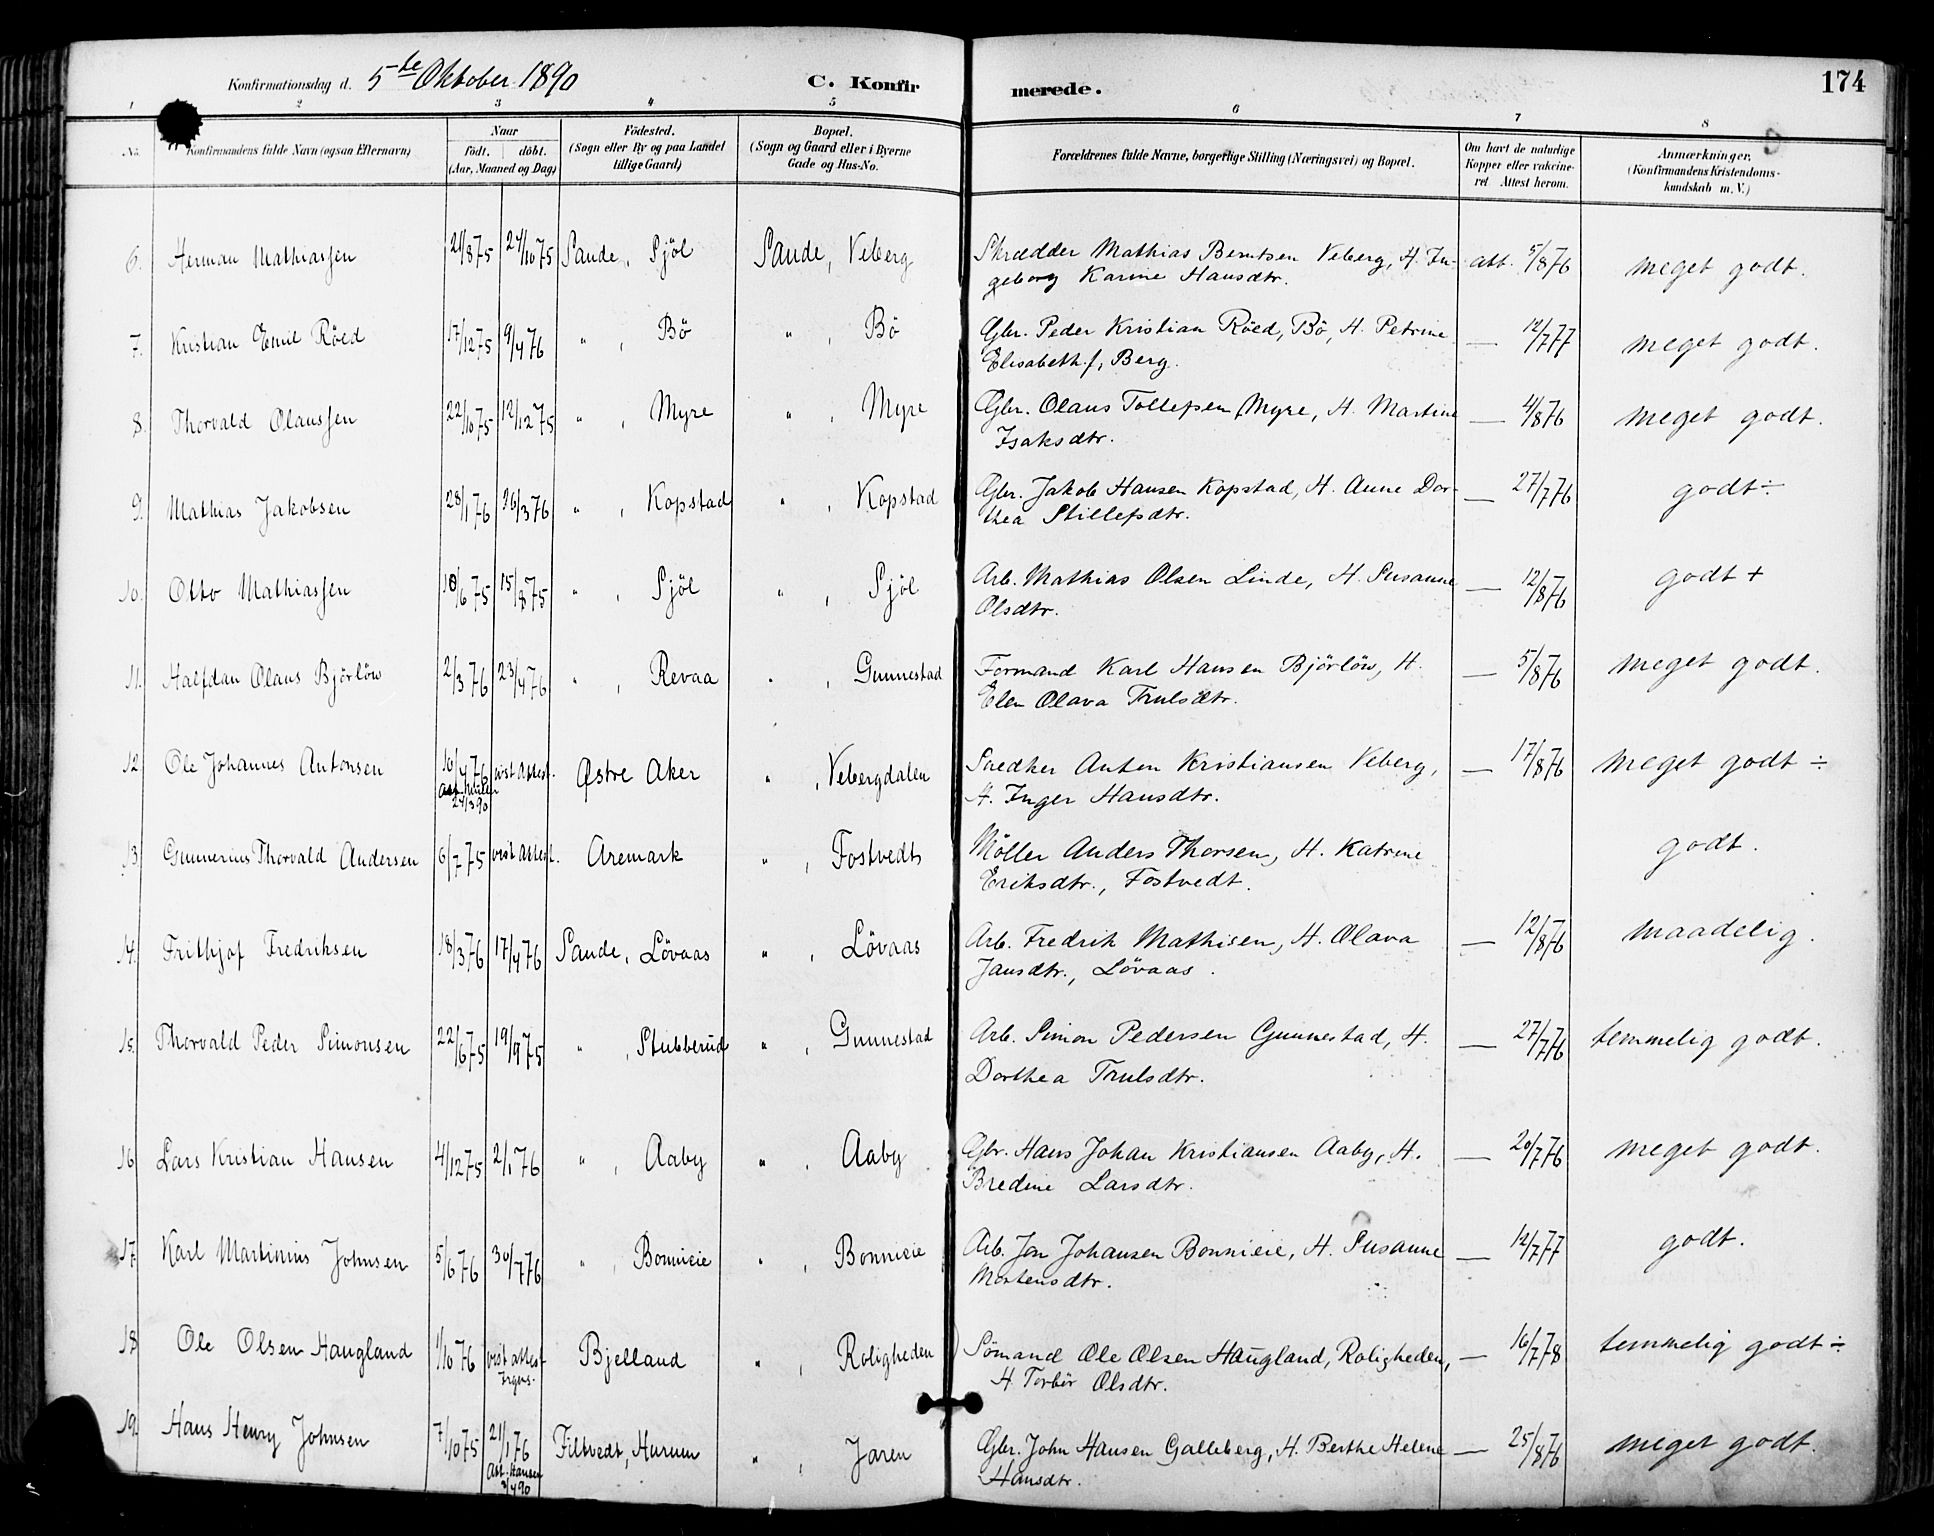 Konfirmationsdag d. 5te Oktober 1890 C. Konfirmerede. 174
1 2 3 4 5 6 7 8
No. Konfirmandens fulde Navn (ogsaa Efternavn) Naar födt. döbt. (Aar, Maaned og Dag) Födested. (Sogn eller By og paa Landet tillige Gaard) Bopæl. (Sogn og Gaard eller i Byerne Gade og Hus-No. Forældrenes fulde Navne, borgerlige Stilling (Næringsvei) og Bopæl. Om havt de naturlige Kopper eller vakcineret Attest herom. Anmærkninger, (Konfirmandens Kristendomskundskab m. V.)
6. Herman Mathiassen 21/8 75 24/10 75 Sande, Sjöl Sande, Veberg Skrædder Mathias Berntsen Veberg, H. In- att. 5/8 76 meget godt.
geborg Karine Hansdtr.
7. Kristian Emil Röed 17/12 75 9/4 76 " , Bö " , Bö Gbr. Peder Kristian Röed, Bö, H. Petrine — 12/7 77 meget godt.
Elisabeth f. Berg.
8. Thorvald Olaussen 22/10 75 12/12 75 " , Myre " , Myre Gbr. Olaus Tollefsen Myre, H. Martine — 4/8 76 meget godt.
Isaksdtr.
9. Mathias Jakobsen 28/1 76 26/3 76 " , Kopstad " , Kopstad Gbr. Jakob Hansen Kopstad, H. Anne Dor- — 27/7 76 godt ÷
thea Stillefsdtr.
10. Otto Mathiassen 10/6 75 15/8 75 " , Sjöl " , Sjöl Arb. Mathias Olsen Linde, H. Susanne — 12/8 76 godt +
Olsdtr.
11. Halfdan Olaus Björlöw 2/3 76 23/4 76 " , Revaa " , Gunnestad Formand Karl Hansen Björlöw, H. — 5/8 76 meget godt.
Elen Olava Trulsdtr.
12. Ole Johannes Antonsen 10/4 76 vist Attest. Østre Aker " , Vebergdalen Snedker Anton Kristiansen Veberg, — 17/8 76 meget godt ÷
24/3 90 H. Inger Hansdtr.
13. Gunnerius Thorvald Andersen 6/7 75 vist Attest. Aremark " , Fostvedt Möller Anders Thorsen, H. Katrine godt.
Eriksdtr., Fostvedt.
14. Frithjof Fredriksen 18/3 76 17/4 76 Sande, Lövaas " , Lövaas Arb. Fredrik Mathisen, H. Olava — 12/8 76 maadelig.
Jansdtr., Lövaas.
15. Thorvald Peder Simonsen 22/6 75 19/9 75 " , Stubberud " , Gunnestad Arb. Simon Pedersen Gunnestad, H. — 27/7 76 temmelig godt.
Dorthea Trulsdtr.
16 Lars Kristian Hansen 4/12 75 2/1 76 " , Aaby " , Aaby Gbr. Hans Johan Kristiansen Aaby, H. — 20/7 76 meget godt.
Bredine Larsdtr.
17. Karl Martinius Johnsen 5/6 76 30/7 76 " , Bonnieie " , Bonnieie Arb. Jon Johansen Bonnieie, H. Susanne — 12/7 77 godt.
Mortensdtr.
18 Ole Olsen Haugland 1/10 76 vist attest Bjelland " , Roligheden Sömand Ole Olsen Haugland, Roligheden, — 16/7 78 temmelig godt ÷
H. Torbör Olsdtr.
19. Hans Henry Johnsen 7/10 75 21/1 76 Filtvedt, Hurum " , Jaren Gbr. John Hansen Galleberg, H. Berthe Helene — 25/8 76 meget godt.
Att. Hansen 3/4 90 Hansdtr.